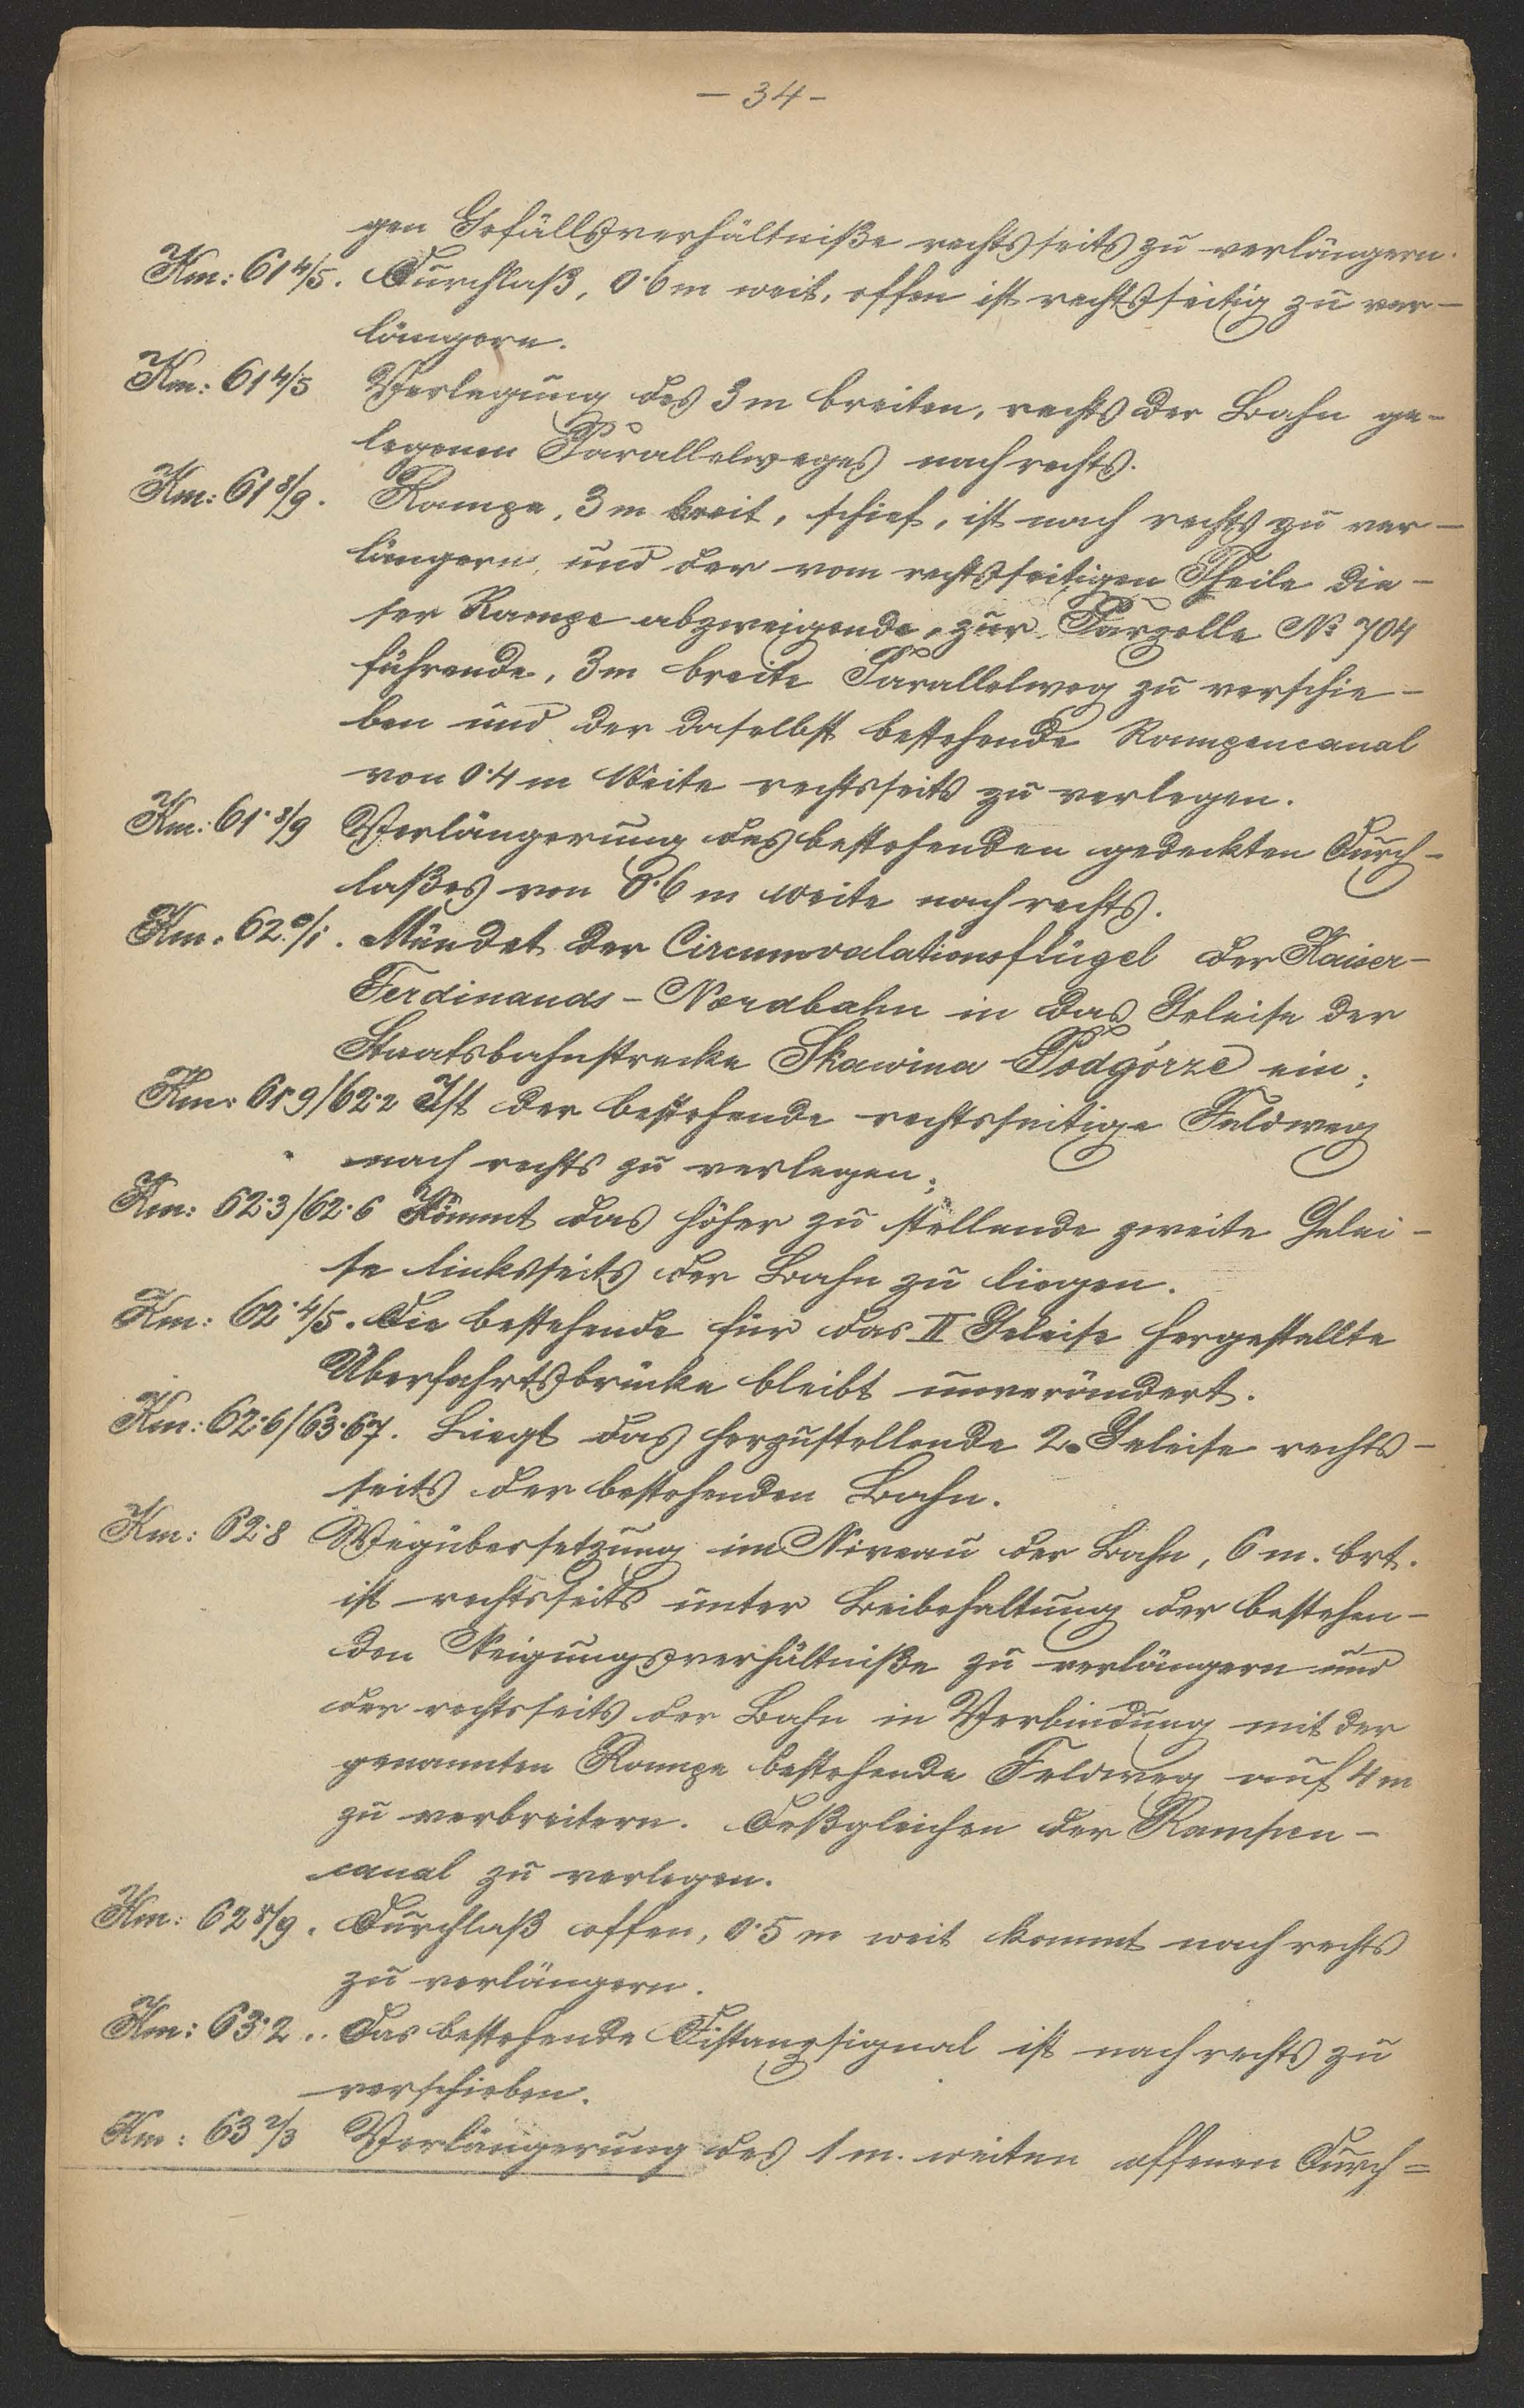 — 34 –
gen Gefällsverhältniße rechtsseits zu verlängern.
Km: 61 4/5. Durchlaß, 0·6 m weit, offen ist rechtsseitig zu ver-
längern.
Km: 61 4/5 Verlegung des 3 m breiten, rechts der Bahn ge-
legenen Parallelweges nach rechts.
Km: 61 8/9. Rampe, 3 m breit, schief, ist nach rechts zu ver-
längern und der vom rechtsseitigen Theile die-
ser Rampe abzweigende, zur Parzelle № 704
führende, 3 m breite Parallelweg zu verschie-
ben und der daselbst bestehende Rampencanal
von 0·4 m Weite rechtsseits zu verlegen.
Km: 61· 8/9 Verlängerung des bestehenden gedeckten Durch-
laßes von 0·6 m weite nach rechts.
Km: 62· 0/1. Mündet der Circumvalationsflügel der Kaiser-
Ferdinands-Nordbahn in das Geleise der
Staatsbahnstrecke Skawina Podgórze ein;
Km: 61·9/62·2 Ist der bestehende rechtsseitige Feldweg
nach rechts zu verlegen;
Km: 62·3/62·6 Kömmt das höher zu stellende zweite Gelei-
se linksseits der Bahn zu liegen.
Km: 62· 4/5. Die bestehende für das II Geleise hergestellte
Überfahrtsbrücke bleibt unverändert.
Km: 62·6/63·67. Liegt das herzustellende 2. Geleise rechts-
seits der bestehenden Bahn.
Km: 62·8 Wegübersetzung im Niveau der Bahn, 6 m. brt.
ist rechtsseits unter Beibehaltung der bestehen-
den Neigungsverhältniße zu verlängern und
der rechtsseits der Bahn in Verbindung mit der
genannten Rampe bestehende Feldweg auf 4 m
zu verbreitern. Deßgleichen der Rampen-
canal zu verlegen.
Km: 62 8/9. Durchlaß offen, 0·5 m weit kommt nach rechts
zu verlängern.
Km: 63·2.. Das bestehende Distanzsignal ist nach rechts zu
verschieben.
Km: 63 2/3 Verlängerung des 1 m. weiten offenen Durch=